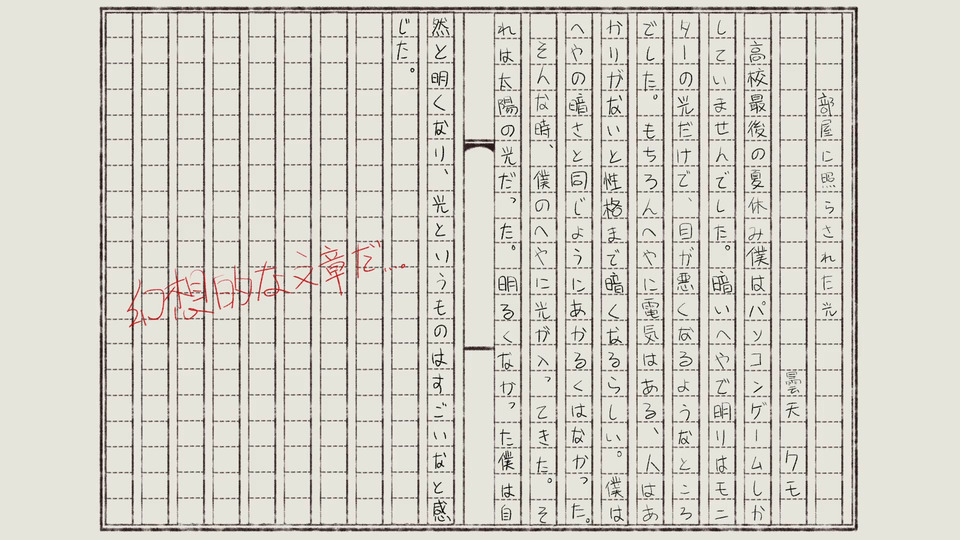 部屋に照らされた光
曇天 クモ
高校最後の夏休み僕はパソコンゲームしか
していませんでした。暗いへやで明りはモニ
ターの光だけで、目が悪くなるようなところ
でした。もちろんへやに電気はある、人はあ
かりがないと性格まで暗くなるらしい。僕は
へやの暗さと同じようにあかるくはなかった。
そんな時、僕のへやに光が入ってきた。そ
れは太陽の光だった。明るくなかった僕は自
然と明くなり、光というものはすごいなと感
じた。
幻想的な文章だ...。